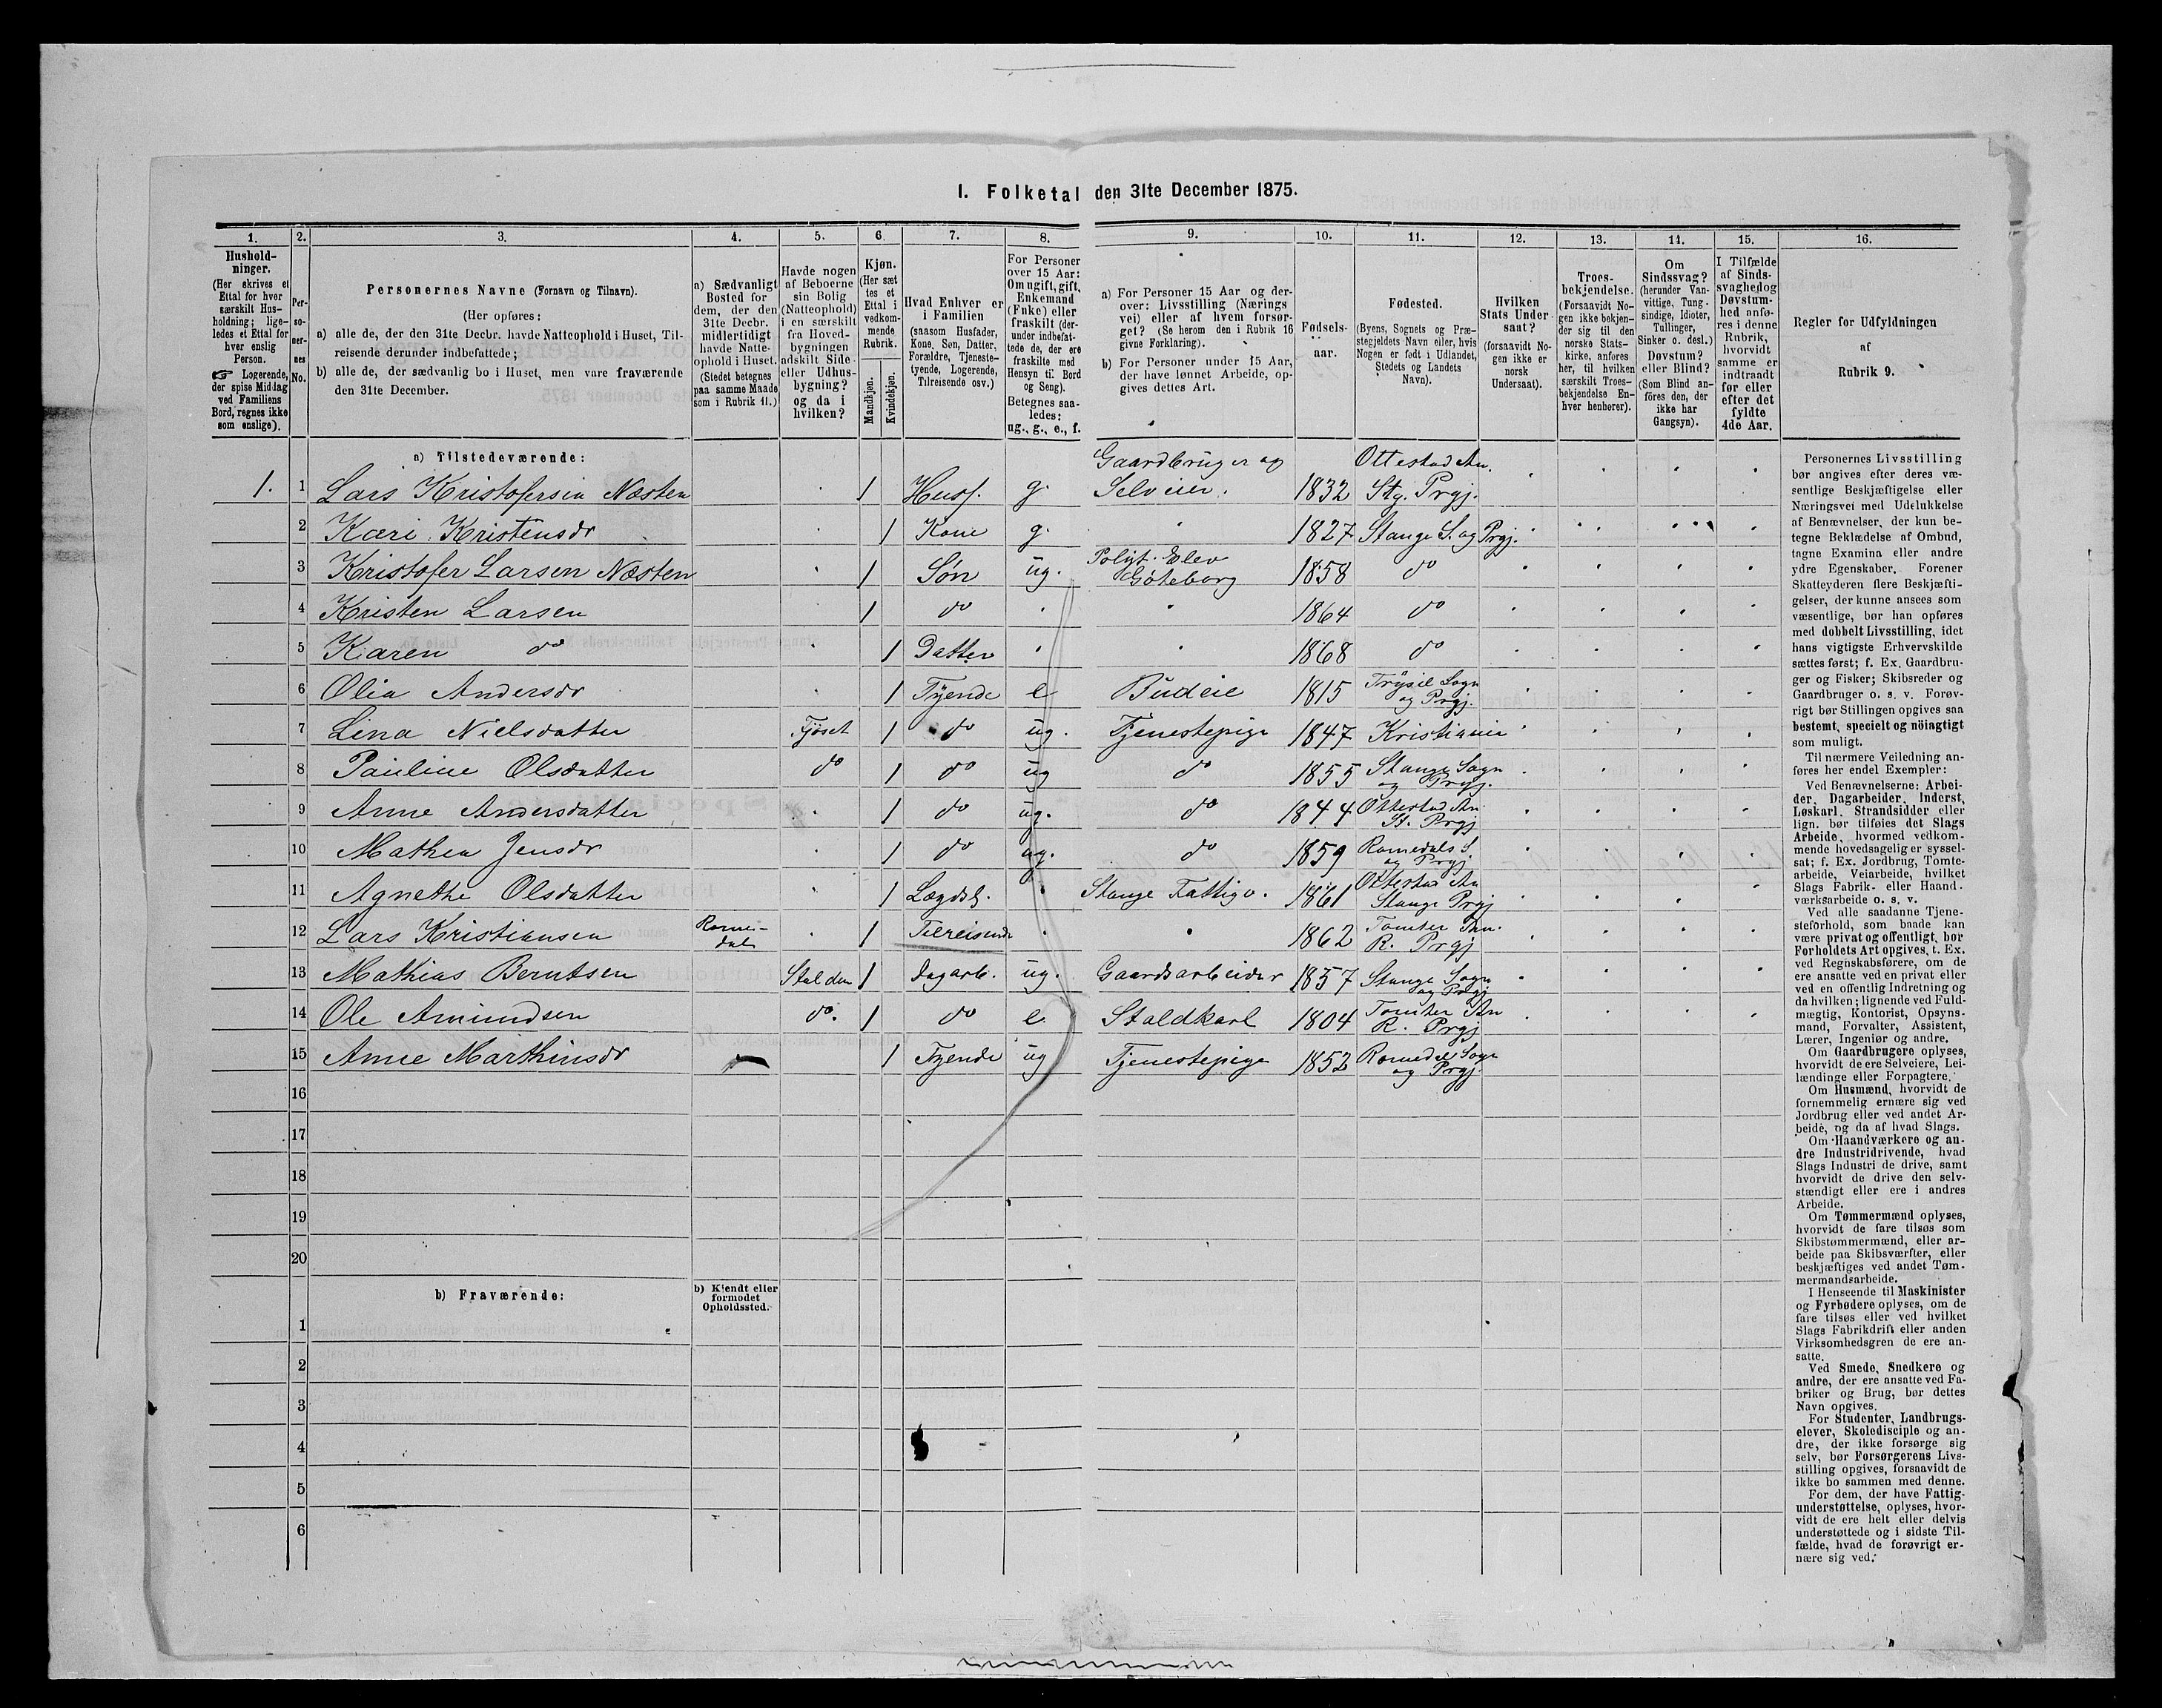 I. Folketal den 31te December 1875.
1. 2. 3. 4. 5. 6. 7. 8. 9. 10. 11. 12. 13. 14. 15. 16.
Hushold-
ninger.
(Her skrives et
Ettal for hver
særskilt Hus-
holdning; lige-
ledes et Ettal for
hver enslig
Person.
☞ Logerende,
der spise Middag
ved Familiens
Bord, regnes ikke
som enslige).
Per-
so-
ner-
nes
No.
Personernes Navne (Fornavn og Tilnavn).
(Her opføres:
a) alle de, der den 31te Decbr. havde Natteophold i Huset, Til-
reisende derunder indbefattede;
b) alle de, der sædvanlig bo i Huset, men vare fraværende
den 31te December.
a) Sædvanligt
Bosted for
dem, der den
31te Decbr.
midlertidigt
havde Natte-
ophold i Huset.
(Stedet betegnes
paa samme Maade
som i Rubrik 11.)
Havde nogen
af Beboerne
sin Bolig
(Natteophold)
i en særskilt
fra Hoved-
bygningen
adskilt Side-
eller Udhus-
bygning?
og da i
hvilken?
Kjøn.
(Her sæt
tes et
Ettal i
vedkom-
mende
Rubrik.
Mandkjøn.
Kvindekjøn.
Hvad Enhver er
i Familien
(saasom Husfader,
Kone, Søn, Datter,
Forældre, Tjeneste-
tyende, Logerende,
Tilreisende osv.)
For Personer
over 15 Aar:
Om ugift, gift,
Enkemand
(Enke) eller
fraskilt (der-
under indbefat-
tede de, der ere
fraskilte med
Hensyn til Bord
og Seng).
Betegnes saa-
ledes:
ug., g., e., f.
a) For Personer 15 Aar og der-
over: Livsstilling (Nærings
vei) eller af hvem forsør-
get? (Se herom den i Rubrik 16
givne Forklaring).
b) For Personer under 15 Aar,
der have lønnet Arbeide, op-
gives dettes Art.
Fødsels-
aar.
Fødested.
(Byens, Sognets og Præ-
stegjeldets Navn eller, hvis
Nogen er født i Udlandet,
Stedets og Landets
Navn).
Hvilken
Stats Under
saat?
(forsaavidt No-
gen ikke er
norsk
Undersaat).
Troes-
bekjendelse.
(Forsaavidt No-
gen ikke bekjen-
der sig til den
norske Stats-
kirke, anføres
her, til hvilken
særskilt Troes-
bekjendelse En-
hver henhører).
Om
Sindssvag?
(herunder Van-
vittige, Tung-
sindige, Idioter,
Tullinger,
Sinker o. desl.)
Døvstum?
eller Blind?
(Som Blind an-
føres den, der
ikke har
Gangsyn).
I Tilfælde
af Sinds-
svaghed og
Døvstum-
hed anfø-
res i denne
Rubrik,
hvorvidt
samme er
indtraadt
før eller
efter det
fyldte
4de Aar.
Regler for Udfyldningen
af
Rubrik 9.
a) Tilstedeværende:
1. 1 Lars Kristofersen Næsten 1 Husf. g. Gaardbruger og Selveier. 1832 Ottestad An. Stg. Prgj.
2 Kari Kristensdr 1 Kone g. 1827 Stange S. og Prgj.
3 Kristofer Larsen Næsten 1 Søn ug. Polyt. Elev Göteborg 1858 do
4 Kristen Larsen 1 do 1864 do
5 Karen do 1 Datter 1868 do
6 Olia Andersdr 1 Tyende e Budeie 1815 Trysil Sogn og Prgj.
7 Lina Nielsdatter Fjöset 1 do ug. Tjenestepige 1847 Kristiania
8 Pauline Olsdatter do 1 do ug do 1855 Stange Sogn og Prgj.
9 Anne Andersdatter 1 do ug. do 1844 Ottestad An. St. Prgj
10 Mathea Jensdr 1 do ug. do 1859 Romedals S. og Prgj.
11 Agnethe Olsdatter 1 Lægdsl. Stange Fattigv. 1861 Ottestad An Stange Prgj
12 Lars Kristiansen Rome-dal 1 Tilreisende 1862 Tomter An. R. Prgj
13 Mathias Berntsen Stalden 1 Dagarb. ug. Gaardsarbeider 1857 Stange Sogn og Prgj
14 Ole Amundsen do. 1 do e Staldkarl 1804 Tomter An R. Prgj
15 Anne Marthinsdr 1 Tyende ug Tjenestepige 1852 Romedal Sogn og Prgj.
16
17
18
19
20
b) Fraværende:
b) Kjendt eller
formodet
Opholdssted.
1
2
3
4
5
6
Personernes Livsstilling
bør angives efter deres væ-
sentlige Beskjæftigelse eller
Næringsvei med Udelukkelse
af Benævnelser, der kun be-
tegne Beklædelse af Ombud,
tagne Examina eller andre
ydre Egenskaber. Forener
Skatteyderen flere Beskjæfti-
gelser, der kunne ansees som
væsentlige, bør han opføres
med dobbelt Livsstilling, idet
hans vigtigste Erhvervskilde
sættes først; f. Ex. Gaardbru-
ger og Fisker; Skibsreder og
Gaardbruger o. s. v. Forøv-
rigt bør Stillingen opgives saa
bestemt, specielt og nöiagtigt
som muligt.
Til nærmere Veiledning an-
føres her endel Exempler:
Ved Benævnelserne: Arbei-
der, Dagarbeider, Inderst,
Løskarl, Strandsidder eller
lign. bør tilføies det Slags
Arbeide, hvormed vedkom-
mende hovedsagelig er syssel-
sat; f. Ex. Jordbrug, Tomte-
arbeide, Veiarbeide, hvilket
Slags Fabrik- eller Haand-
værksarbeide o. s. v.
Ved alle saadanne Tjene-
steforhold, som baade kan
være privat og offentligt, bør
Forholdets Art opgives, t. Ex.
ved Regnskabsførere, om de
ere ansatte ved en privat eller
ved en offentlig Indretning og
da hvilken; lignende ved Fuld-
mægtig, Kontorist, Opsyns-
mand, Forvalter, Assistent,
Lærer, Ingeniør og andre.
Om Gaardbrugere oplyses,
hvorvidt de ere Selveiere, Lei-
lændinge eller Forpagtere.
Om Husmænd, hvorvidt de
fornemmelig ernære sig ved
Jordbrug eller ved andet Ar-
beide, og da af hvad Slags.
Om Haandværkere og an-
dre Industridrivende, hvad
Slags Industri de drive, samt
hvorvidt de drive den selv-
stændigt eller ere i andres
Arbeide.
Om Tømmermænd oplyses,
hvorvidt de fare tilsøs som
Skibstømmermænd, eller ar-
beide paa Skibsværfter, eller
beskjæftiges ved andet Tøm-
mermandsarbeide.
I Henseende til Maskinister
og Fyrbødere oplyses, om de
fare tilsøs eller ved hvilket
Slags Fabrikdrift eller anden
Virksomhedsgren de ere an-
satte.
Ved Smede, Snedkere og
andre, der ere ansatte ved Fa-
briker og Brug, bør dettes
Navn opgives.
For Studenter, Landbrugs-
elever, Skoledisciple og an-
dre, der ikke forsørge sig
selv, bør Forsørgerens Livs-
stilling opgives, forsaavidt de
ikke bo sammen med denne.
For dem, der have Fattig-
understøttelse, oplyses, hvor-
vidt de ere helt eller delvis
understøttede og i sidste Til-
fælde, hvad de forøvrigt er-
nære sig ved.